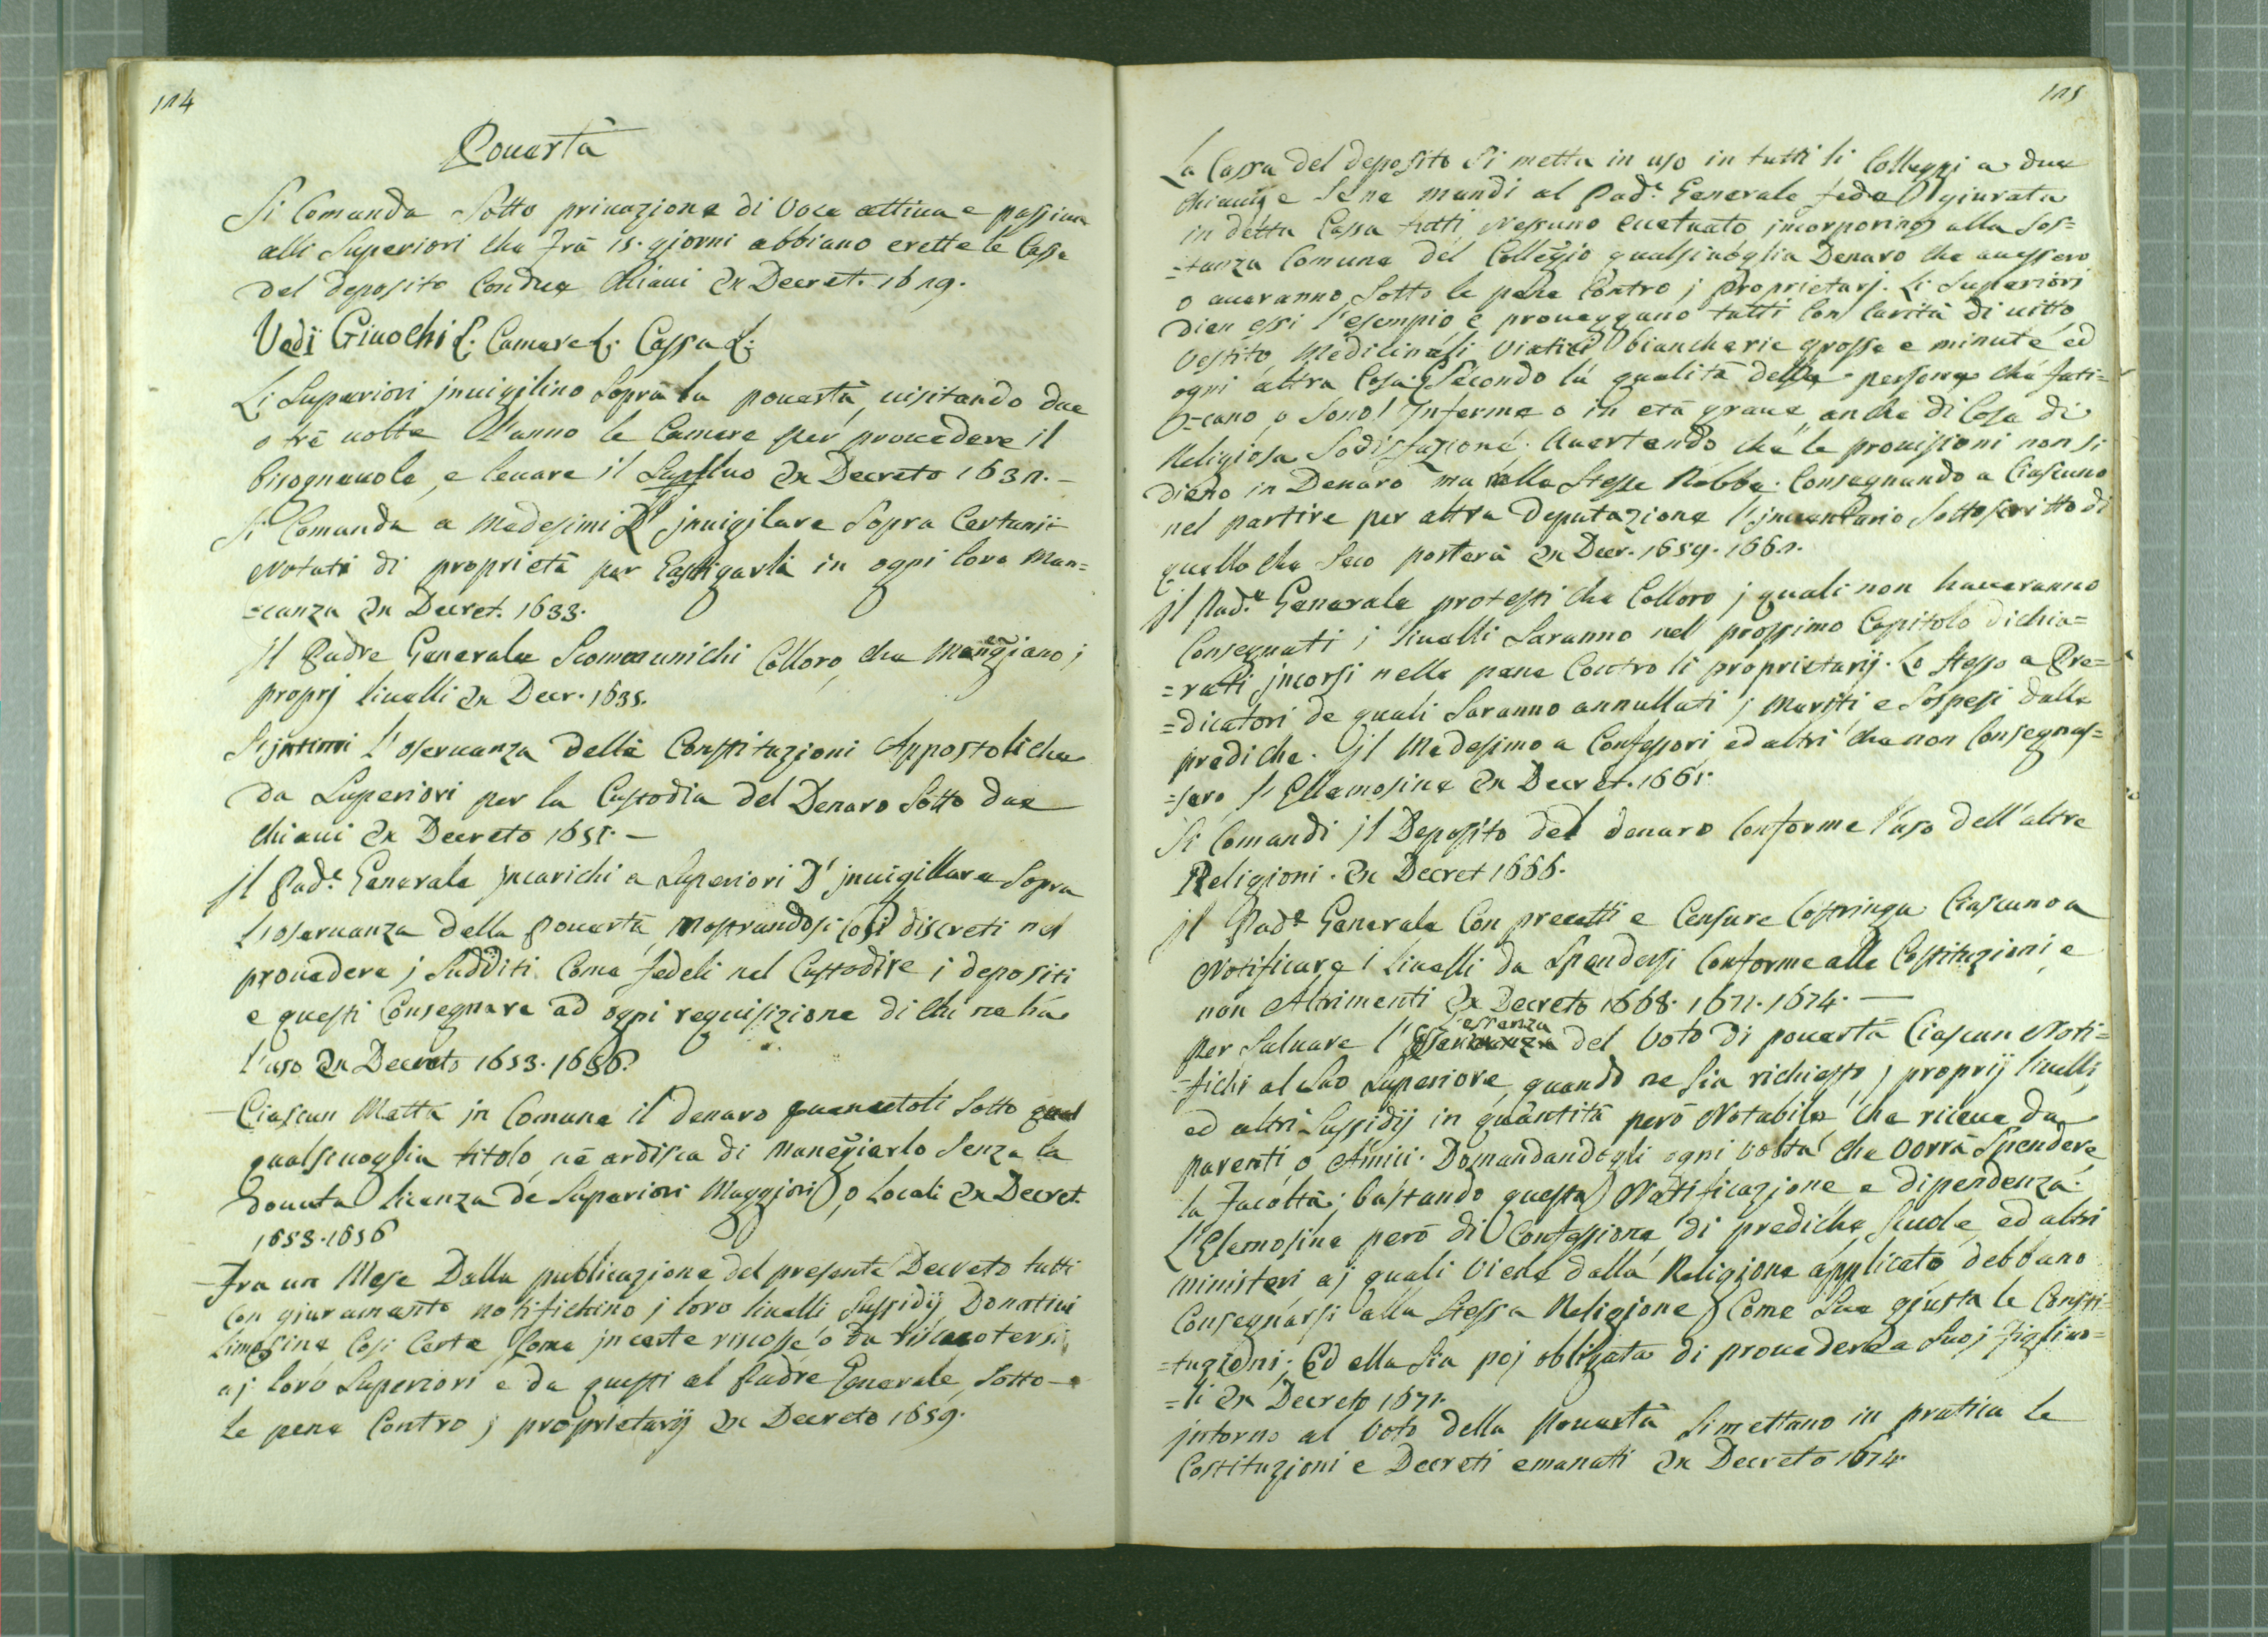 114
Pouertà
Si Comanda Sotto priuazione di Voce attiua e passiua
alli Superiori che Frà 15. giorni abbiano erette le Casse
del deposito Con due Chiaui Ex Decret. 1629.
Vedi Giuochi L: Camere L: Cassa L:
Li Superiori jnuigilino Sopra la pouertà, uisitando due
o trè uolte L'anno le Camere per prouedere il
bisogneuole, e leuare il Supfluo Ex Decreto 1632.–
Si Comanda a Medesimi D' jnuigilare Sopra Certunij
Notati di proprietà per Castigarli in ogni loro Man=
=canza Ex Decret. 1633.
jl Padre Generale Scommunichi Colloro, che Mangiano j
proprj liuelli Ex Decr. 1635.
Si jntimi l'oseruanza delle Constituzioni Appostoliche
da Superiori per la Custodia del Denaro Sotto due
chiaui Ex Decreto 1651.–
jl Pad.e Generale jncarichi a Superiori D' jnuigillare Sopra
L'oseruanza della pouertà, Mostrandosi Così discreti nel
prouedere j Sudditi Come fedeli nel Custodire i depositi
e questi Consegnare ad ogni requisizione di chi ne hà
l'uso Ex Decreto 1653. 1656.
Ciascun Metta jn Comune il denaro Sotto
qualsiuoglia titolo, nè ardisca di Manegiarlo Senza la
douuta licenza de Superiori Maggiori, o Locali Ex Decret.
1653. 1656
Fra un Mese Dalla publicazione del presente Decreto tutti
Con giuramento notifichino j loro liuelli Sussidij Donatiui
Limosine Cosi Certe, Come jncerte riscosse o da riscuotersi
aj loro Superiori e da questi al Padre Generale, Sotto
le pene Contro j proprietarij Ex Decreto 1659.
115
La Cassa del deposito Si metta in uso in tutti li Colleggi a due
chiaui, e Se ne mandi al Pad.e Generale fede giurata
in detta Cassa tutti Nessuno ecetuato jncorporino alla Sos=
=tanza Comune del Collegio qualsiuoglia Denaro che auessero
o aueranno Sotto le pene Contro j Proprietarj. Li Superiori
dien essi l'esempio e proueggano tutti Con Carità di uitto
Vestito Medicinali Viatici biancherie grosse e minute ed
ogni altra Cosa, Secondo la qualità delle persone che fati=
=cano o Sono Inferme o in età graue anche di Cosa di
Religiosa Sodisfazione. Auertendo che le prouisioni non si
dieno in Denaro ma nelle Stesse Robbe. Consegnando a Ciascuno
nel partire per altra Deputazione l'jnuentario Sottoscritto di
quello che Seco porterà Ex Decr. 1659. 1661.
jl Pad.e Generale protesti che Colloro j quali non haueranno
Consegnati i liuelli Saranno nel prossimo Capitolo dichia=
=rati jncorsi nelle pene Contro li proprietarij. Lo Stesso a Pre=
=dicatori de quali Saranno annullati j Meriti e Sospesi dalle
prediche. jl Medesimo a Confessori ed altri che non Consegnas=
=sero l'Ellemosine Ex Decret. 1661.
Si Comandi jl Deposito del denaro Conforme l'uso dell'altre
Religioni. Ex Decret 1666.
jl Pad.e Generale Con precetti e Censure Costringa Ciascuno a
Notificare i liuelli da Spendersi Conforme alle Costituzioni, e
non Altrimenti Ex Decreto 1668. 1671. 1674.–
per Saluare l'essenza del Voto di pouertà Ciascun Noti=
=fichi al Suo Superiore, quando ne Sia richiesto, j proprij liuelli,
ed altri Sussidij in quantità però Notabile che riceue da
parenti o Amici. Domandandogli ogni uolta che Vorrà Spendere
la Facoltà; bastando questa Notificazione e dipendenza.
L'Elemosine però di Confessione di prediche Scuole, ed altri
ministeri aj quali Viene dalla Religione applicato debbano
Consegnarsi alla Stessa Religione, Come Sue giusta le Consti=
=tuzioni; Ed ella Sia poj obligata di prouedere a Suoj Figliuo=
=li Ex Decreto 1671.
jntorno al Voto della Pouertà Si mettano in pratica le
Costituzioni e Decreti emanati Ex Decreto 1674.